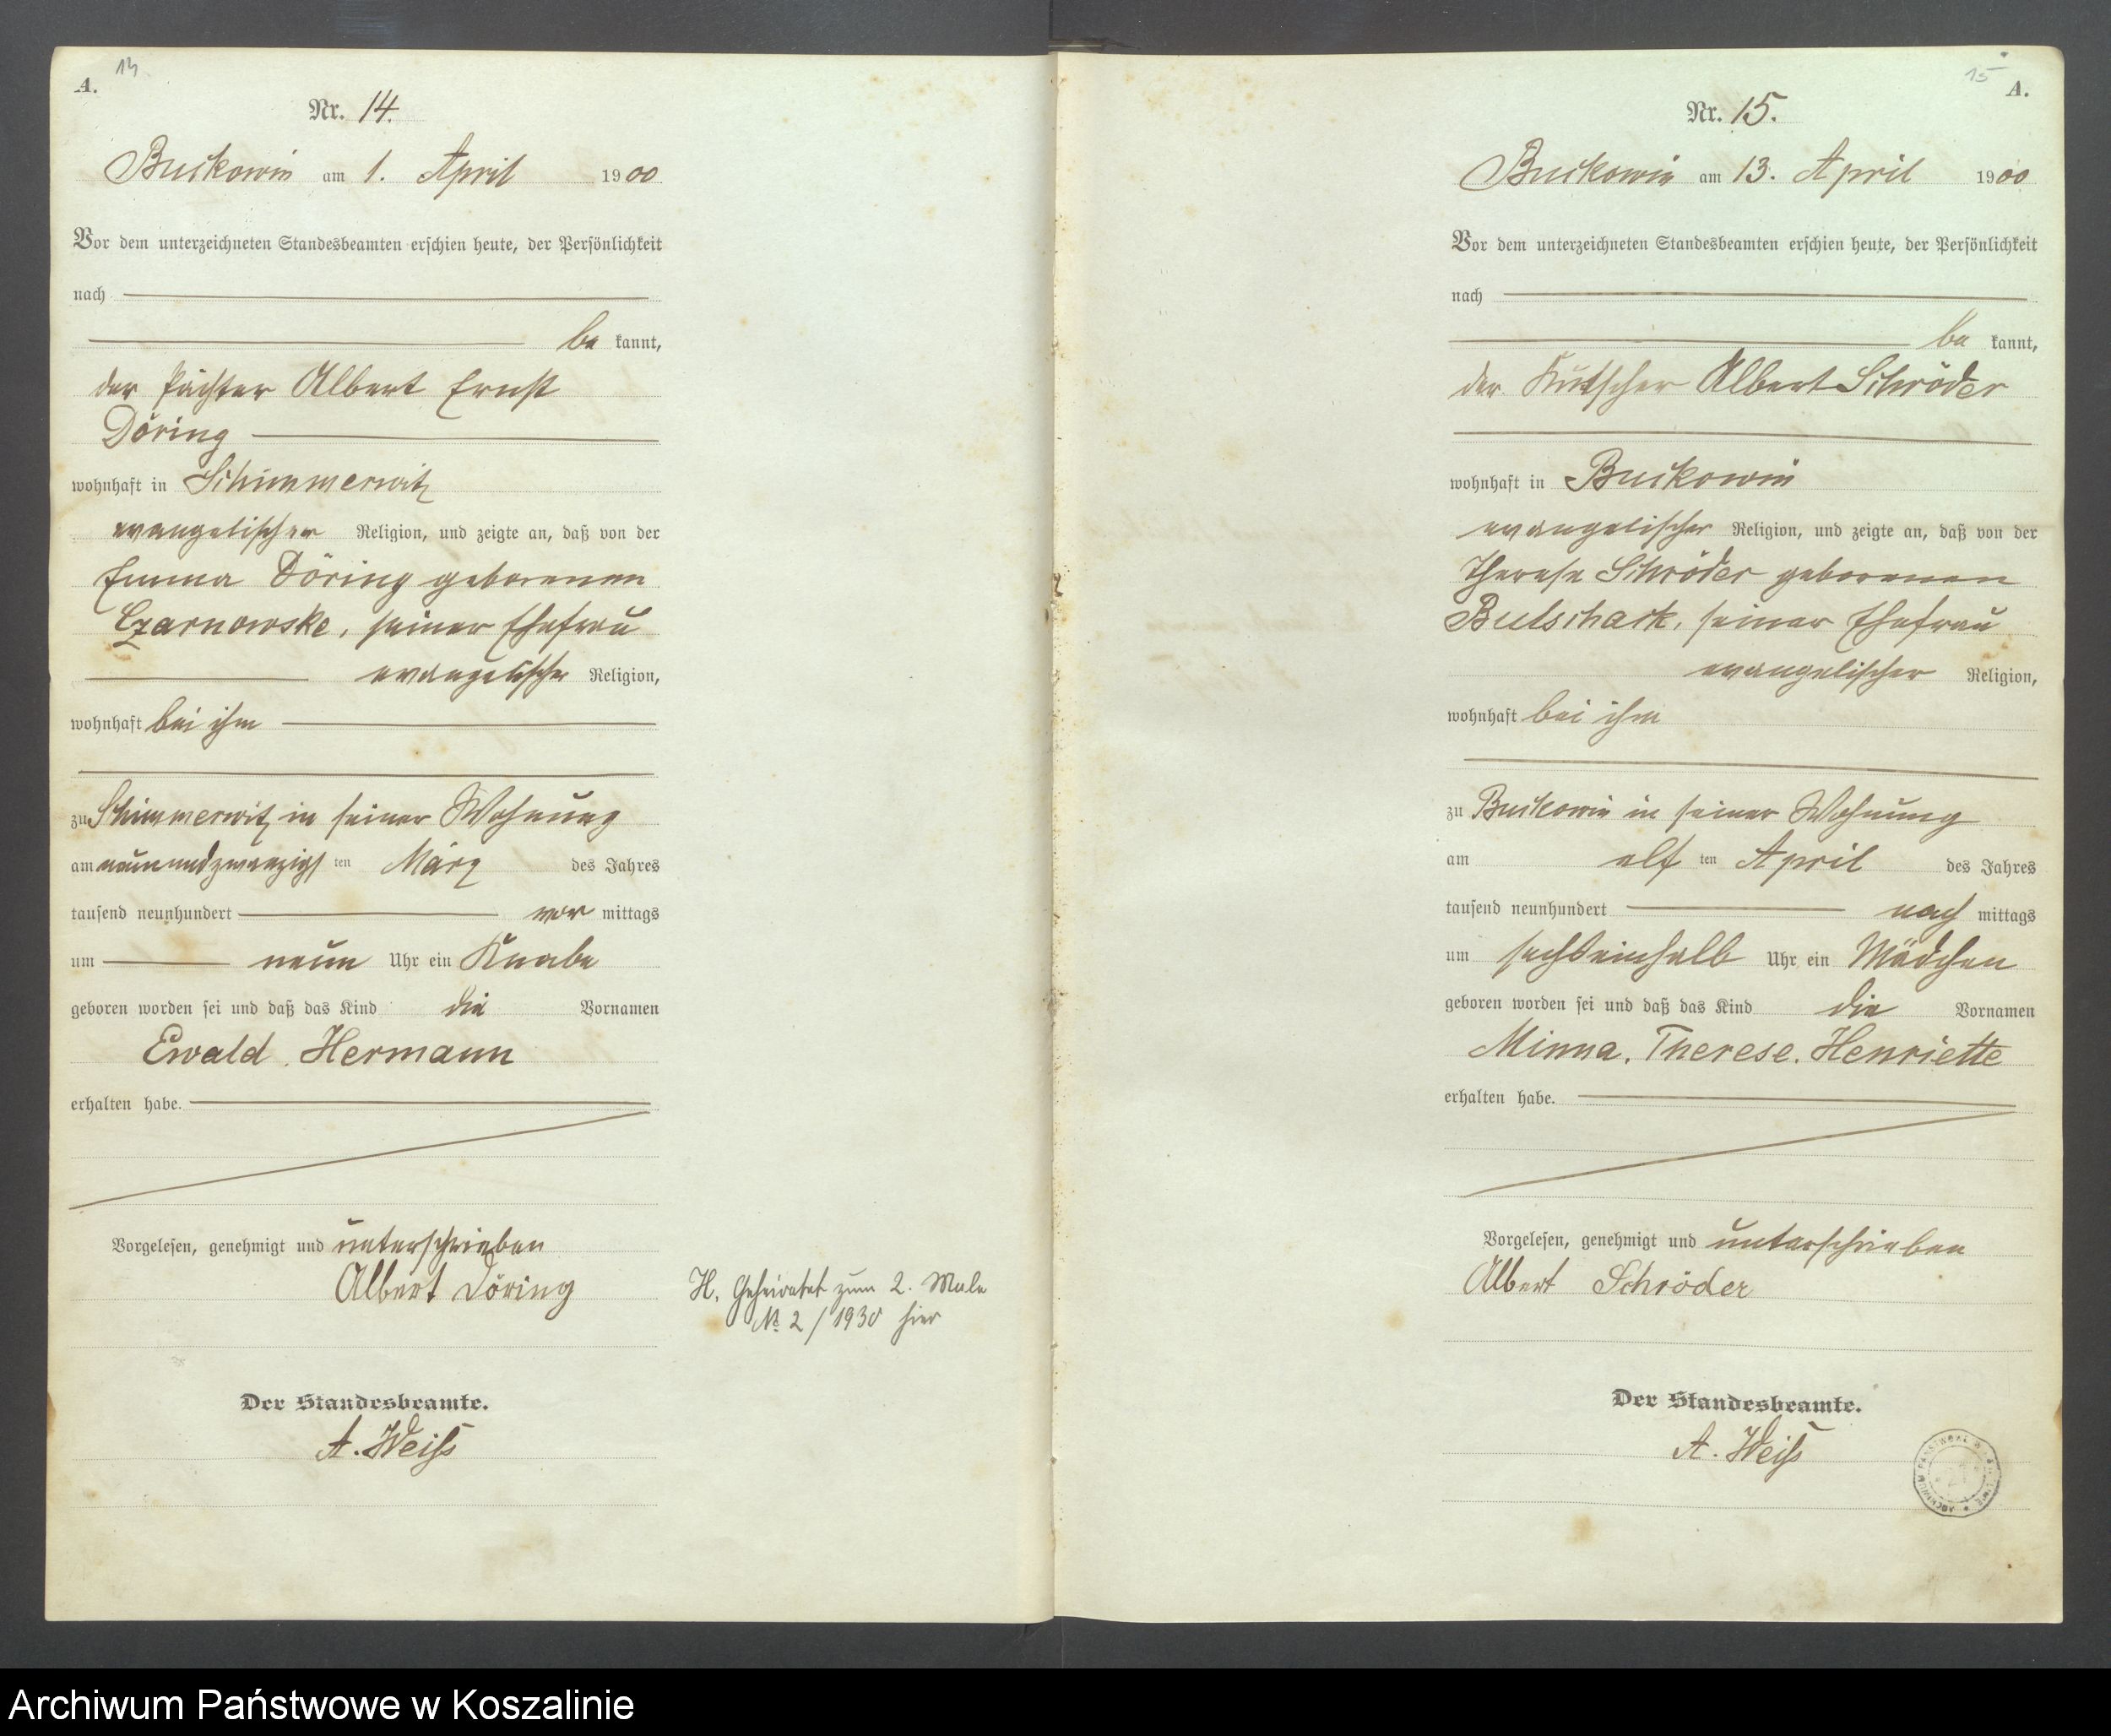 14
A.
Nr. 14.
Buckowin am 1. April 1900
Vor dem unterzeichneten Standesbeamten erschien heute, der Persönlichkeit
nach
be kannt,
der Pächter Albert Ernst
Döring
wohnhaft in Schimmerwitz
evangelischer Religion, und zeigte an, daß von der
Emma Döring geborenen
Czarnowske, seiner Ehefrau
evangelischer Religion,
wohnhaft bei ihm
zu Schimmerwitz in seiner Wohnung
am neunundzwanzigs ten März des Jahres
tausend neunhundert vor mittags
um neun Uhr ein Knabe
geboren worden sei und daß das Kind die Vornamen
Ewald, Hermann
erhalten habe.
Vorgelesen, genehmigt und unterschrieben
Albert Döring
Der Standesbeamte.
A. Weiß
H. Geheiratet zum 2. Male
No 2/1930 hier
15
A.
Nr. 15.
Buckowin am 13. April 1900
Vor dem unterzeichneten Standesbeamten erschien heute, der Persönlichkeit
nach
be kannt,
der Kutscher Albert Schröder
wohnhaft in Buckowin
evangelischer Religion, und zeigte an, daß von der
Therese Schröder geborenen
seiner Ehefrau
evangelischer Religion,
wohnhaft bei ihm
zu Buckowin in seiner Wohnung
am elf ten April des Jahres
tausend neunhundert nach mittags
um sechseinhalb Uhr ein Mädchen
geboren worden sei und daß das Kind die Vornamen
Minna, Therese, Henriette
erhalten habe.
Vorgelesen, genehmigt und unterschrieben
Albert Schröder
Der Standesbeamte.
A. Weiß
Archiwum Państwowe w Koszalinie